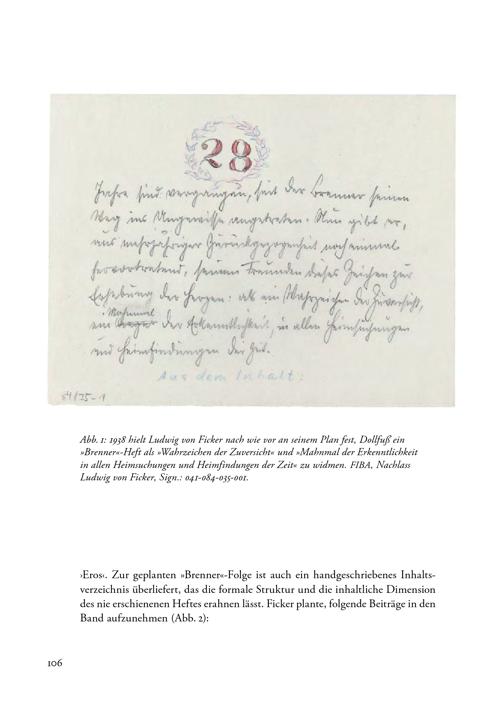 28
Jahre sind vergangen, seit der Brenner seinen
Weg ins Ungewisse angetreten. Nun gibt er,
aus mehrjähriger Zurückgezogenheit noch einmal
hervortretend, seinen Freunden dieses Zeichen zur
Erhebung der Herzen: als ein Wahrzeichen der Zuversicht,
Mahnmal
ein der Erkenntlichkeit, in allen Heimsuchungen
und Heimfindungen der Zeit.
Aus dem Inhalt:
Abb. 1: 1938 hielt Ludwig von Ficker nach wie vor an seinem Plan fest, Dollfuß ein
»Brenner«-Heft als »Wahrzeichen der Zuversicht« und »Mahnmal der Erkenntlichkeit
in allen Heimsuchungen und Heimfindungen der Zeit« zu widmen. FIBA, Nachlass
Ludwig von Ficker, Sign.: 041-084-035-001.
›Eros‹. Zur geplanten »Brenner«-Folge ist auch ein handgeschriebenes Inhalts-
verzeichnis überliefert, das die formale Struktur und die inhaltliche Dimension
des nie erschienenen Heftes erahnen lässt. Ficker plante, folgende Beiträge in den
Band aufzunehmen (Abb. 2):
106